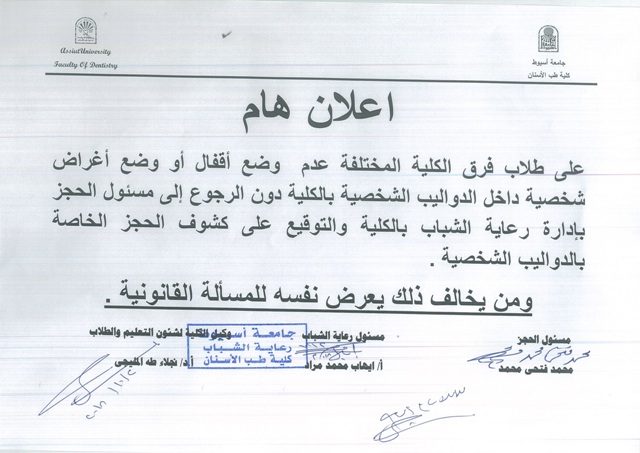 Assiut University
Faculty Of Dentistry
جامعة أسيوط
كلية طب الأسنان
اعلان هام
على طلاب فرق الكلية المختلفة عدم وضع أقفال أو وضع أغراض
شخصية داخل الدواليب الشخصية بالكلية دون الرجوع إلى مسئول الحجز
بإدارة رعاية الشباب بالكلية والتوقيع على كشوف الحجز الخاصة
بالدواليب الشخصية .
ومن يخالف ذلك يعرض نفسه للمسألة القانونية .
مسئول الحجز
مسئول رعاية الشباب
وكيل الكلية لشئون التعليم والطلاب
جامعة أسيوط
رعاية الشباب
كلية طب الأسنان
محمد فتحى محمد
أ/ ايهاب محمد مراد
أ.د/ نجلاء طه المليجى